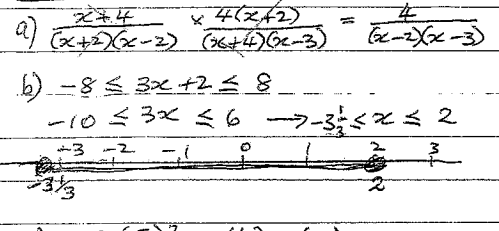 a) x+4/(x+2)(x-2) × 4(x+2)/(x+4)(x-3) = 4/(x-2)(x-3)
b) -8 ≤ 3x+2 ≤ 8
-10 ≤ 3x ≤ 6 → -3 1/3 ≤ x ≤ 2
-3 -2 -1 0 1 2 3
-3 1/3 2